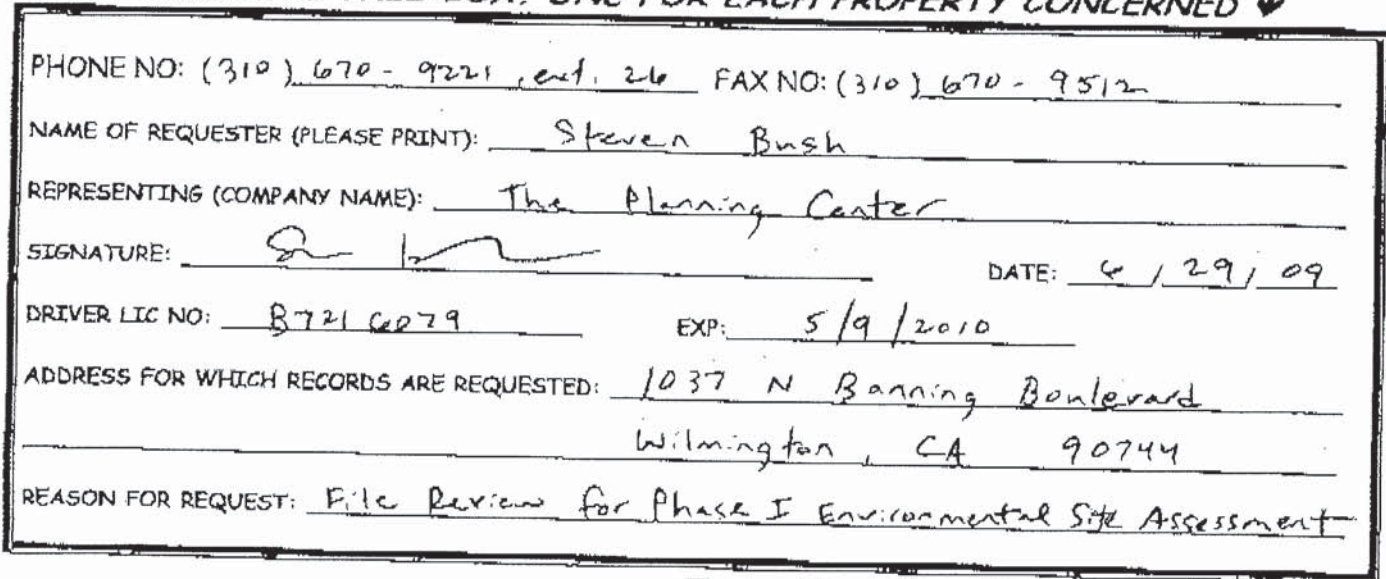 ONE FOR EACH PROPERTY CONCERNED ♥
PHONE NO: (310) 670 - 9221, ext. 26 FAX NO: (310) 670 - 9512
NAME OF REQUESTER (PLEASE PRINT): Steven Bush
REPRESENTING (COMPANY NAME): The Planning Center
SIGNATURE: DATE: 6 / 29 / 09
DRIVER LIC NO: B7216079 EXP: 5/9/2010
ADDRESS FOR WHICH RECORDS ARE REQUESTED: 1037 N Banning Boulevard
Wilmington, CA 90744
REASON FOR REQUEST: File Review for Phase I Environmental Site Assessment